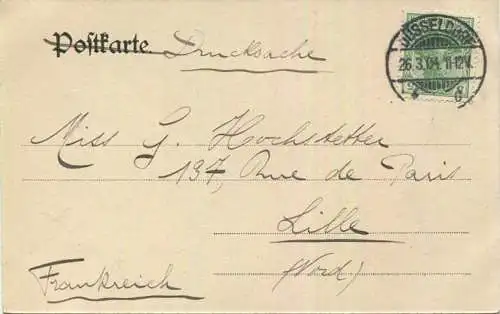 Postkarte. Drucksache
DÜSSELDORF
26.3.04. 11-12V.
Miss G. Hochstetter
137, Rue de Paris
Lille
(Nord)
Frankreich